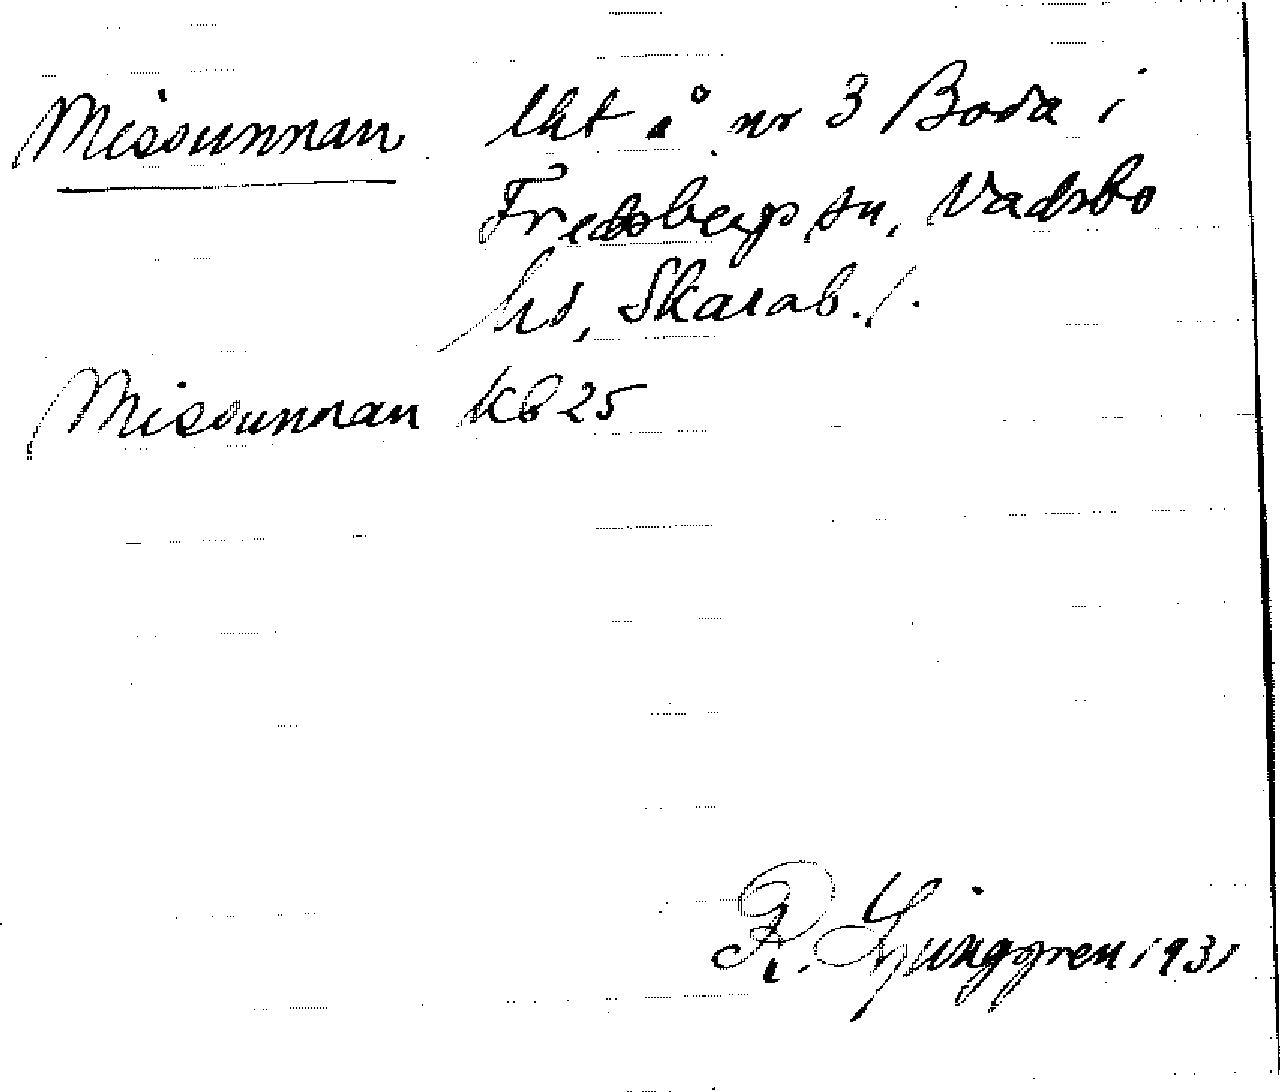 Missunnan lht å nr 3 Boda i
Fredsbergs sn, Vadsbo
hd, Skarab. l.
Missunnan KB 25
R. Ljunggren 1931